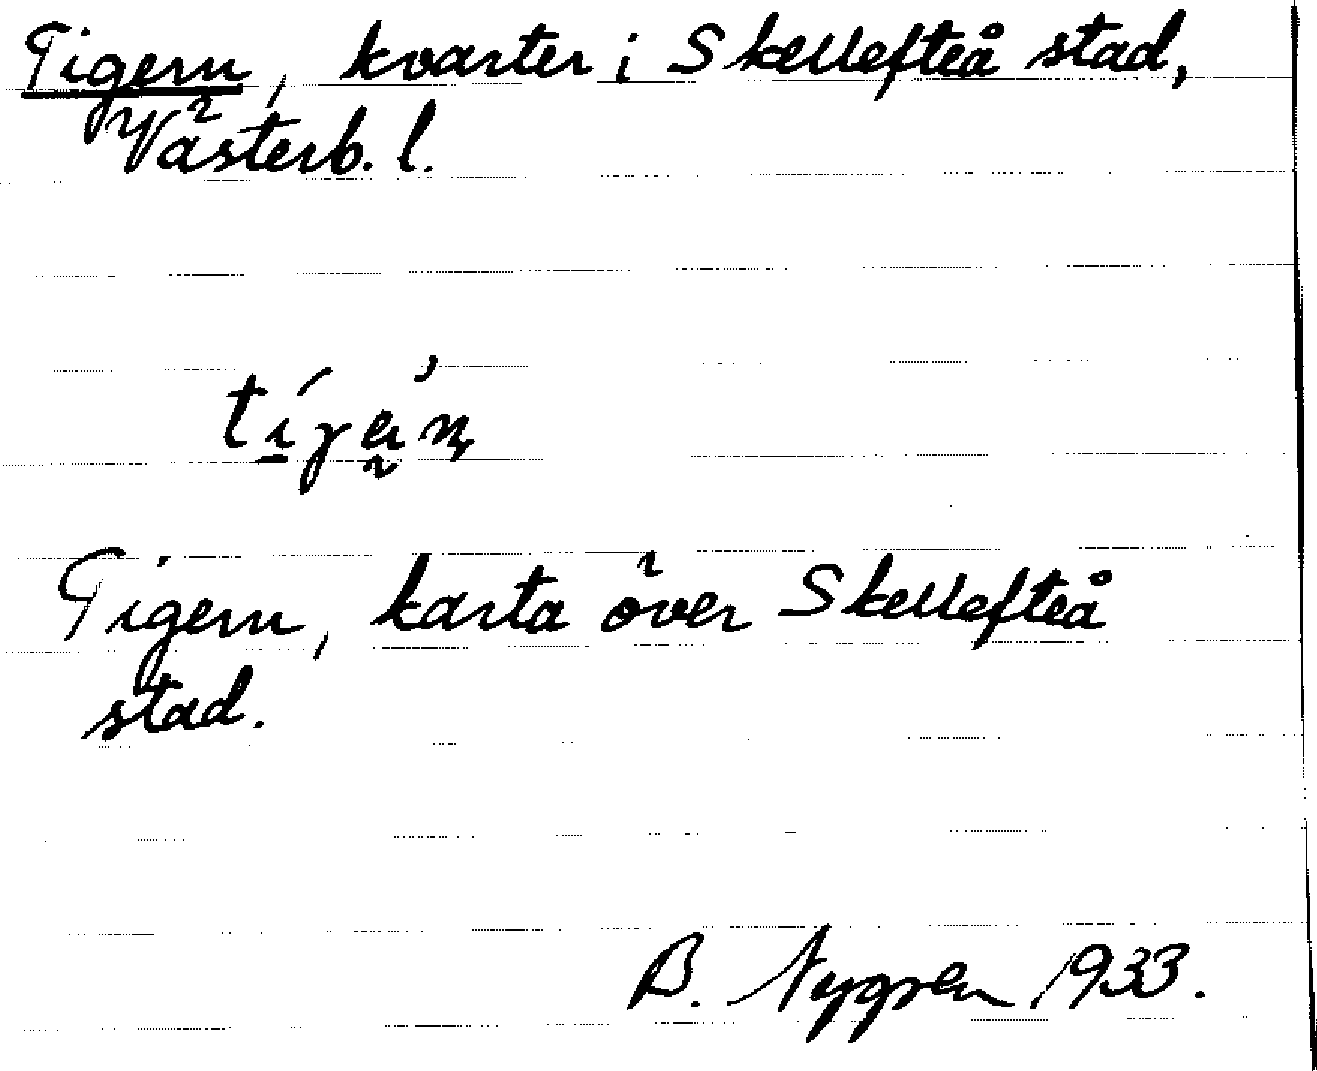 Tigern, kvarter i Skellefteå stad,
Västerb. l.
Tigern, karta över Skellefteå
stad.
B. Nygren 1933.